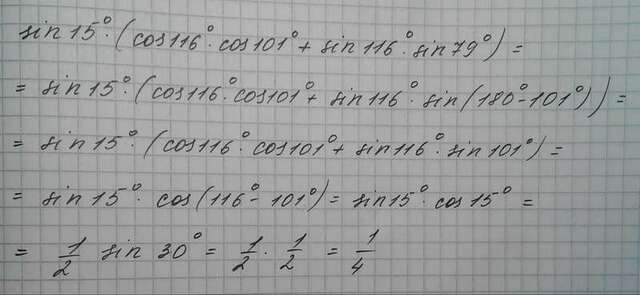 sin 15° · (cos 116° · cos 101° + sin 116° · sin 79°) =
= sin 15° · (cos 116° · cos 101° + sin 116° · sin (180° - 101°)) =
= sin 15° · (cos 116° · cos 101° + sin 116° · sin 101°) =
= sin 15° · cos (116° - 101°) = sin 15° · cos 15° =
= 1/2 sin 30° = 1/2 · 1/2 = 1/4